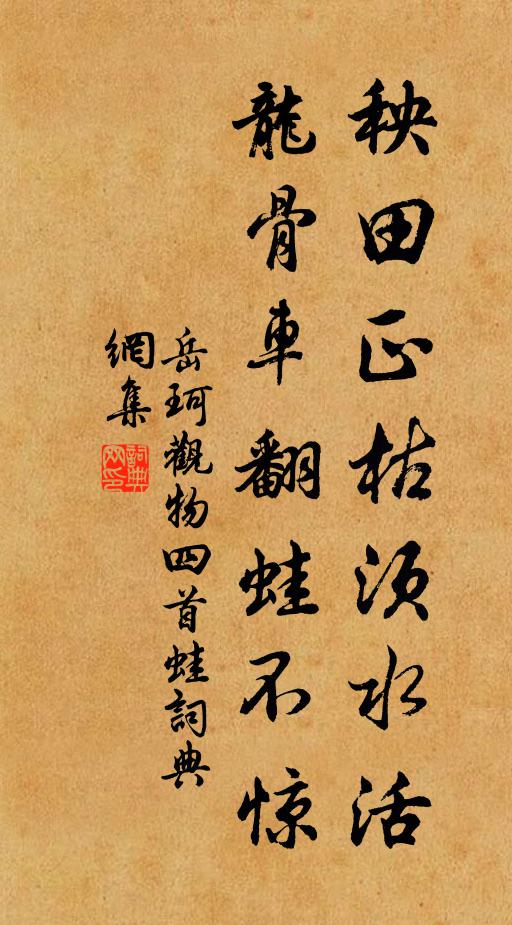 秧田正枯须水活
龍骨車翻蛙不惊
岳珂觀物四首蛙詞典
網集
詞典
网印